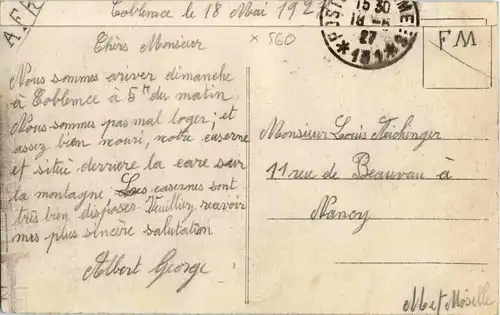 A.F.R.
Coblence le 18 Mai 192
Chèrs Monsieur
× 560
15 30
18 -5
27
* 181 *
FM
Nous sommes ariver dimanche
à Coblence à 5h du matin
Nous sommes pas mal loger, et
assez bien nouri, notre caserne
et situé derriere la care sur
la montagne, Les casernes sont
très bien disposer Veuillez recevoir
mes plus sincère salutation
Albert George
Monsieur Louis Feichinger
11 rue de Beauvau à
Nancy
M et Moselle